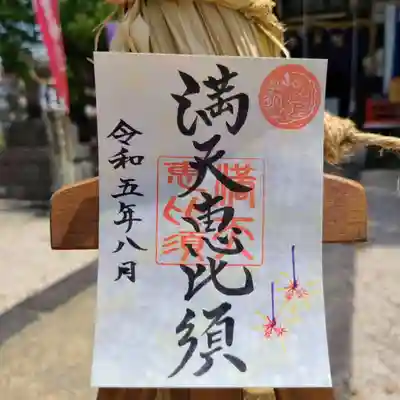 満天恵比須
満天
恵比須
令和五年八月